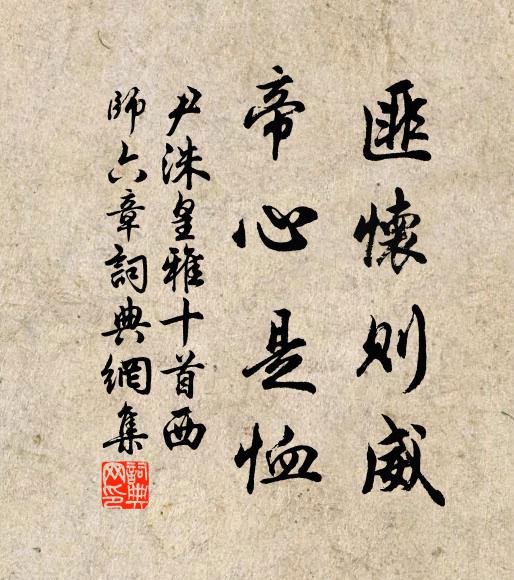 匪懷則威
帝心是恤
尹洙皇雅十首西
師六章詞典網集
詞典网印